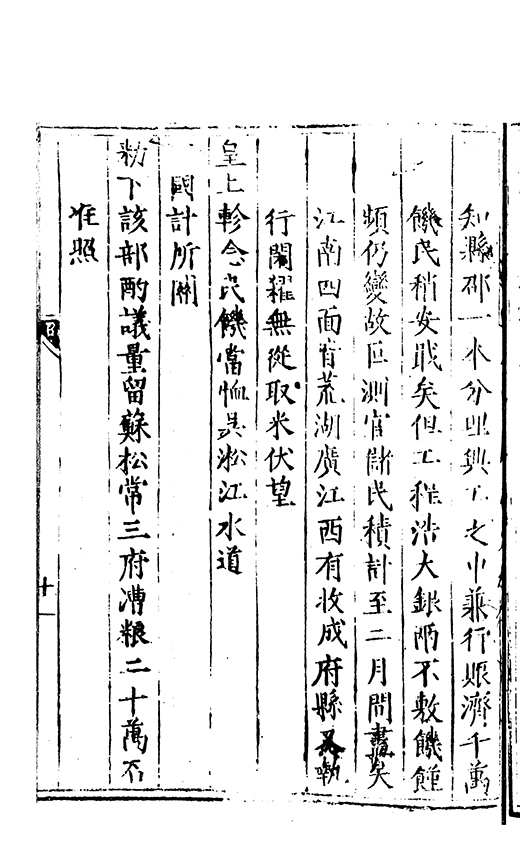 知縣邵一本分理興工之中兼行賑濟千萬
饑民稍安戢矣但工程浩大銀兩不敷饑饉
頻仍變故叵測官儲民積計至二月間盡矣
江南四面皆荒湖廣江西有收成府縣又執
行閉糴無從取米伏望
皇上軫念民饑當恤吳淞江水道
國計所關
勑下該部酌議量留蘇松常三府漕粮二十萬石
准照
十